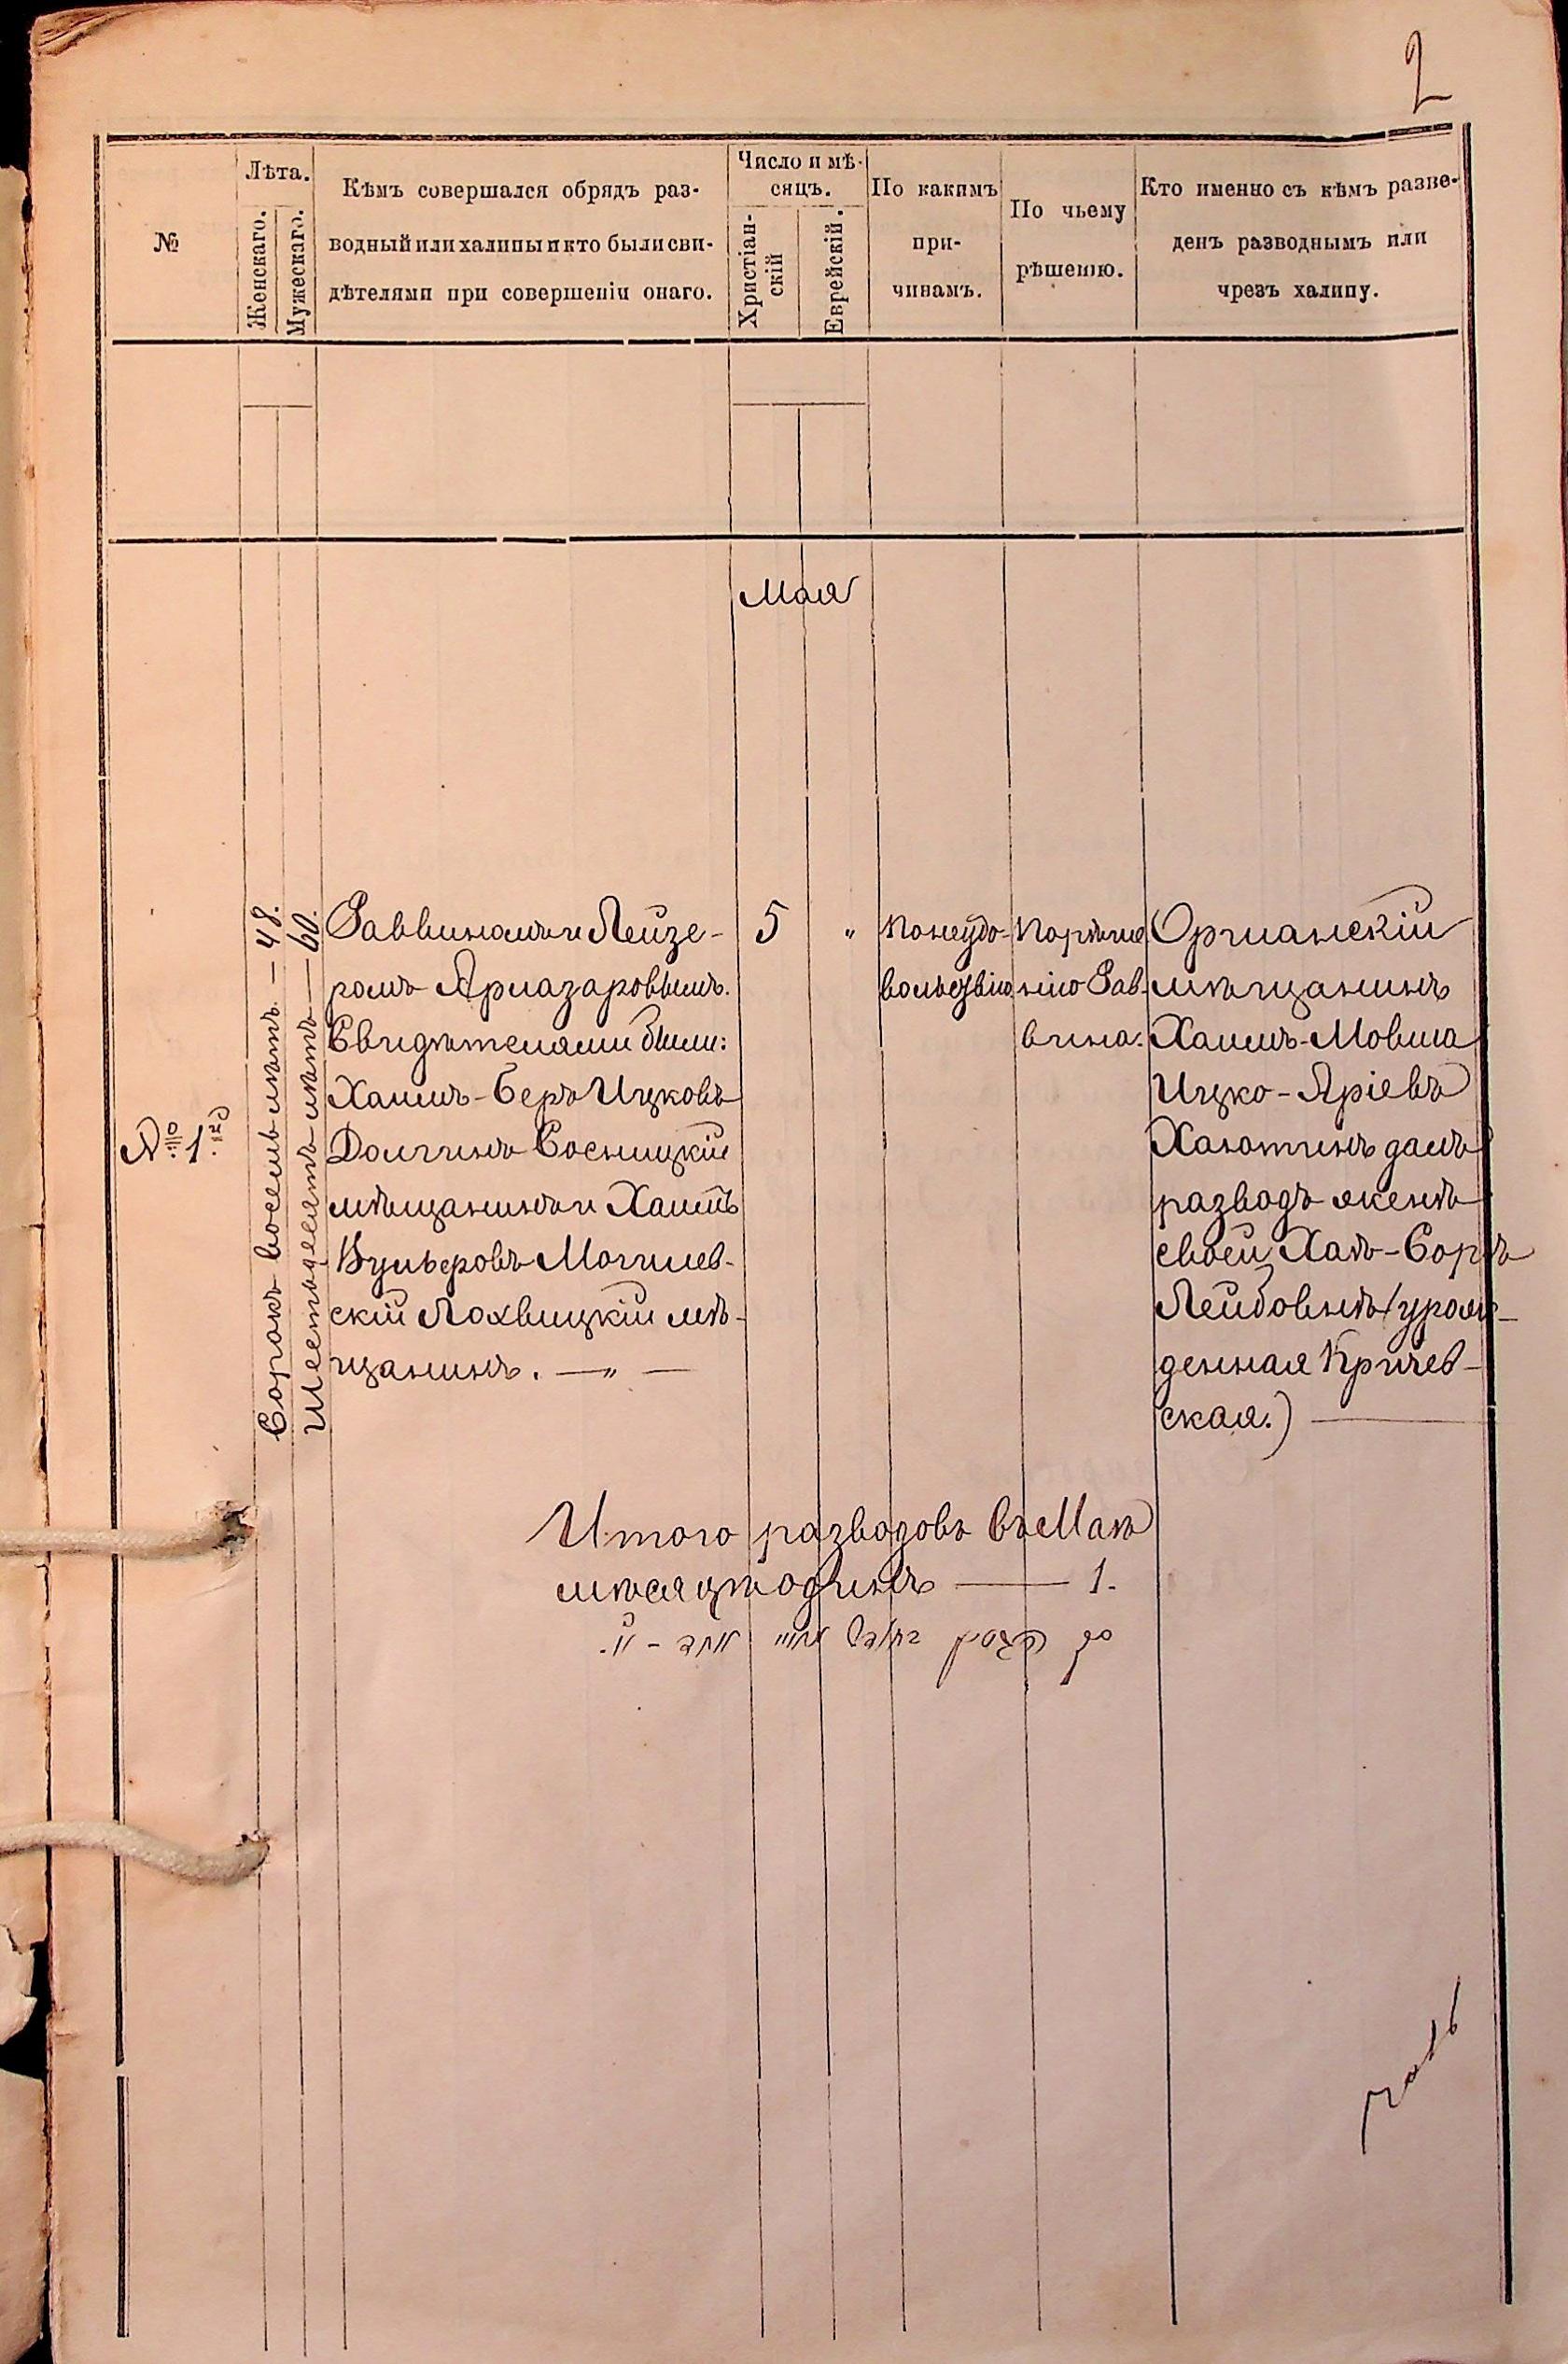 2
№
Лѣта.
Женскаго.
Мужескаго.
Кѣмъ совершался обрядъ раз-
водный или халицы и кто были сви-
дѣтелями при совершеніи онаго.
Число и мѣ-
сяцъ.
Христіан-
скій
Еврейскій.
По какимъ
при-
чинамъ.
По чьему
рѣшенію.
Кто именно съ кѣмъ разве-
денъ разводнымъ или
чрезъ халицу.
Мая
№ 1й
Сорокъ восемь лѣтъ. — 48.
Шестьдесятъ лѣтъ — 60.
Раввиномъ Лейзе-
ромъ
Свидѣтелями были:
Хаимъ-Беръ Ицковъ
Долгинъ Сосницкій
мѣщанинъ и Хаимъ
Вульфовъ Могилев-
скій Лохвицкій мѣ-
щанинъ. — " —
5
"
По неудо-
вольствію
По рѣше
нію Рав-
вина.
Оршанскій
мѣщанинъ
Хаимъ-Мовша
Ицко-Аріевъ
Хаютинъ далъ
разводъ женѣ
своей Хаѣ-Сорѣ
Лейбовнѣ (урож-
денная Кричев-
ская.)
Итого разводовъ въ Маѣ
мѣсяцѣ одинъ — 1.